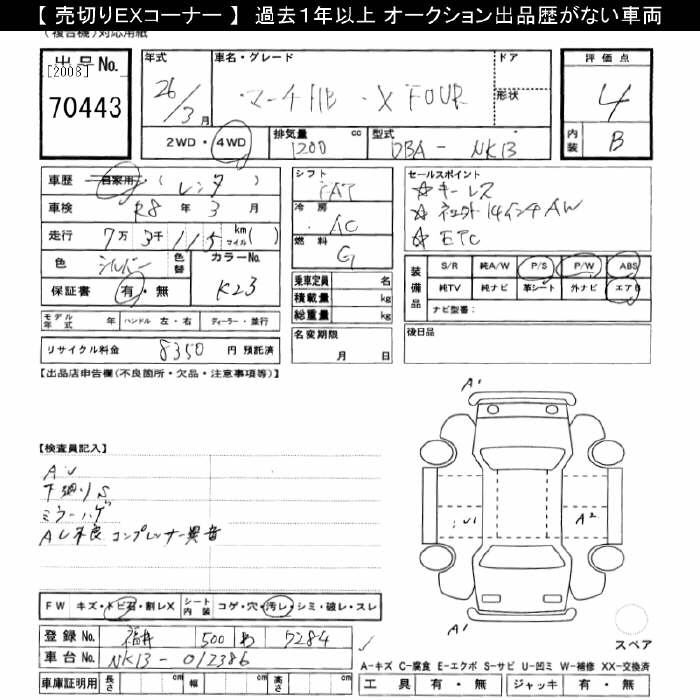 【 売切りEXコーナー 】 過去１年以上 オークション出品歴がない車両
(複合機)対応用紙
出品No.
[2008]
70443
年式
26/3月
車名・グレード
マーチHB X FOUR
ドア
形状
評価点
4
内装
B
2WD・4WD
排気量 1200 cc
型式 DBA- NK13
車歴 自家用 ( レンタ )
車検 R8 年 3 月
走行 7万 3千 115 km マイル( )
色 シルバー 色替
カラーNo. K23
保証書 有・無
シフト
FAT
冷房
AC
燃料
G
セールスポイント
☆ キーレス
14インチAW
☆ ETC
乗車定員 名
積載量 kg
総重量 kg
装備品
S/R 純A/W P/S P/W ABS
純TV 純ナビ 革シート 外ナビ エアB
ナビ型番:
モデル年式 年 ハンドル 左・右 ディーラー・並行
リサイクル料金 8350 円 預託済
名変期限
月 日
後日品
【出品店申告欄(不良箇所・欠品・注意事項等)】
【検査員記入】
AU
下廻りS
ミラーハゲ
AC不良 コンプレッサー異音
A1
A2
A1
FW キズ・トビ石・割レX シート内装 コゲ・穴・汚レ・シミ・破レ・スレ
登録No. 福井 500 わ 7284
車台No. NK13-012386
車庫証明用 長さ cm 幅 cm 高さ cm
スペア
A-キズ C-腐食 E-エクボ S-サビ U-凹ミ W-補修 XX-交換済
工具 有・無 ジャッキ 有・無